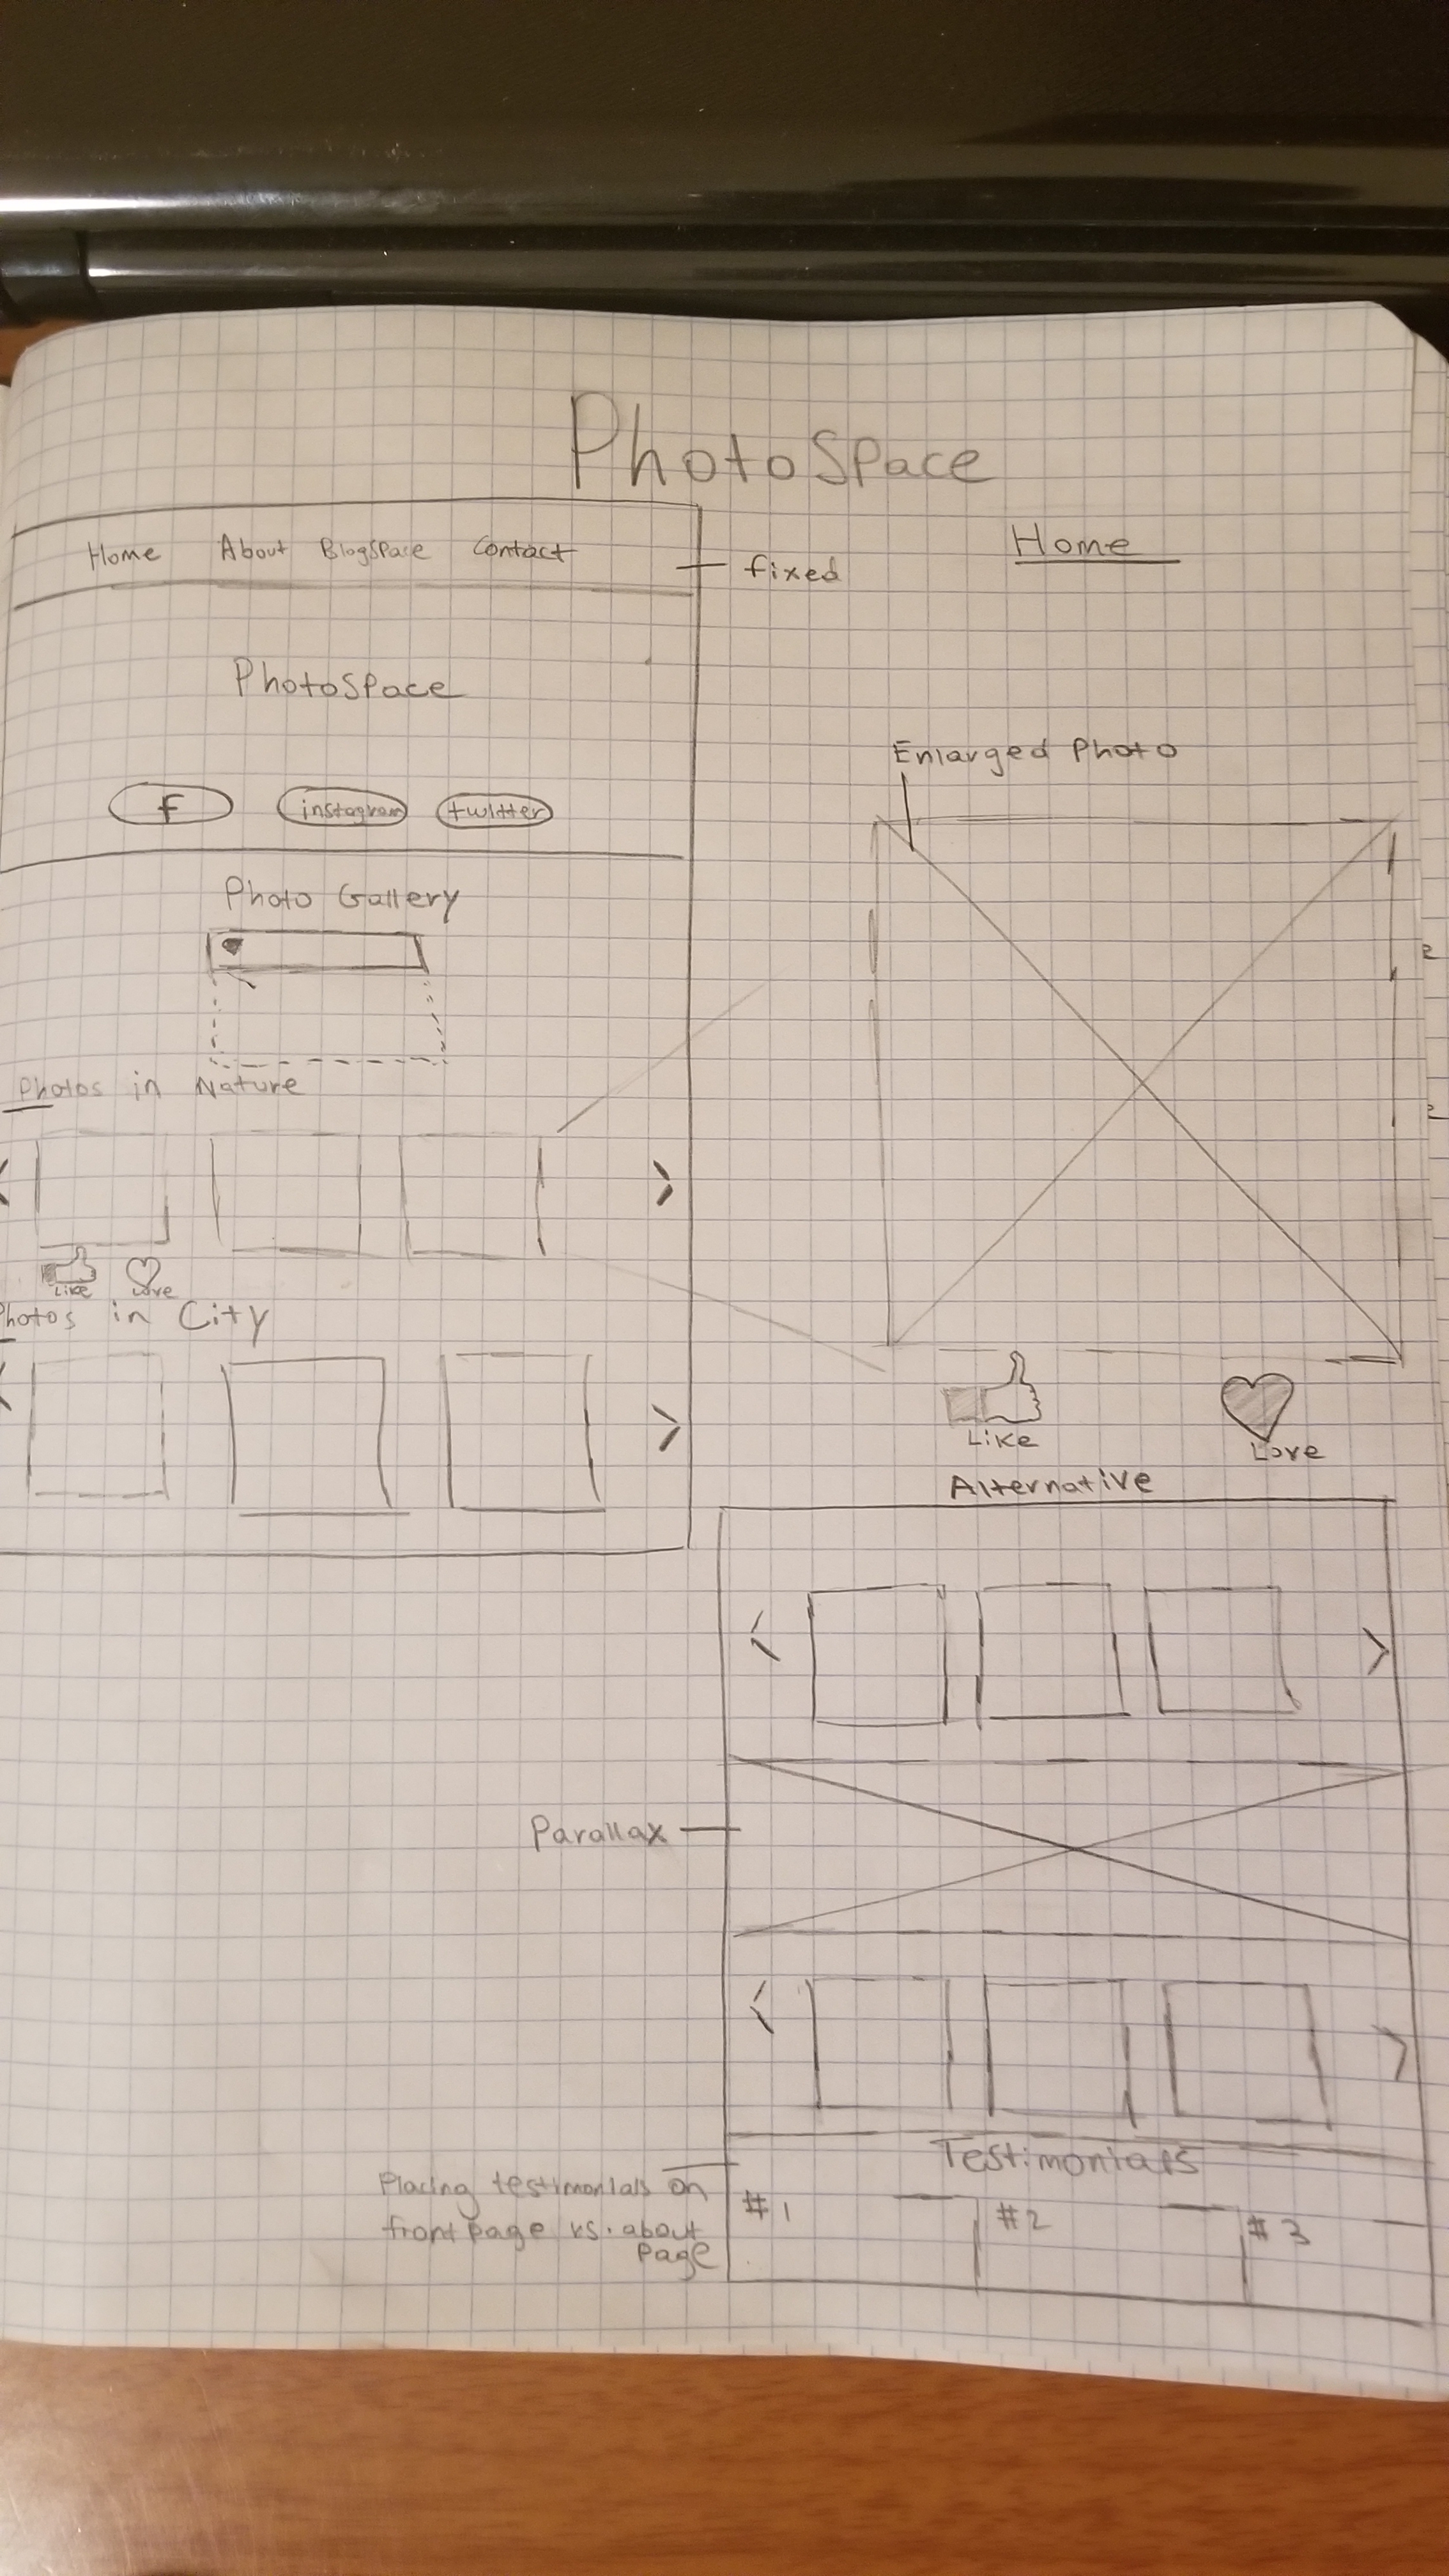 PhotoSpace
Home About BlogSpace Contact
fixed
Home
PhotoSpace
f instagram twitter
Photo Gallery
Photos in Nature
Like Love
Photos in City
Enlarged Photo
Like
Love
Alternative
Parallax
Testimonials
Placing testimonials on
front page vs. about
page
#1 #2 #3